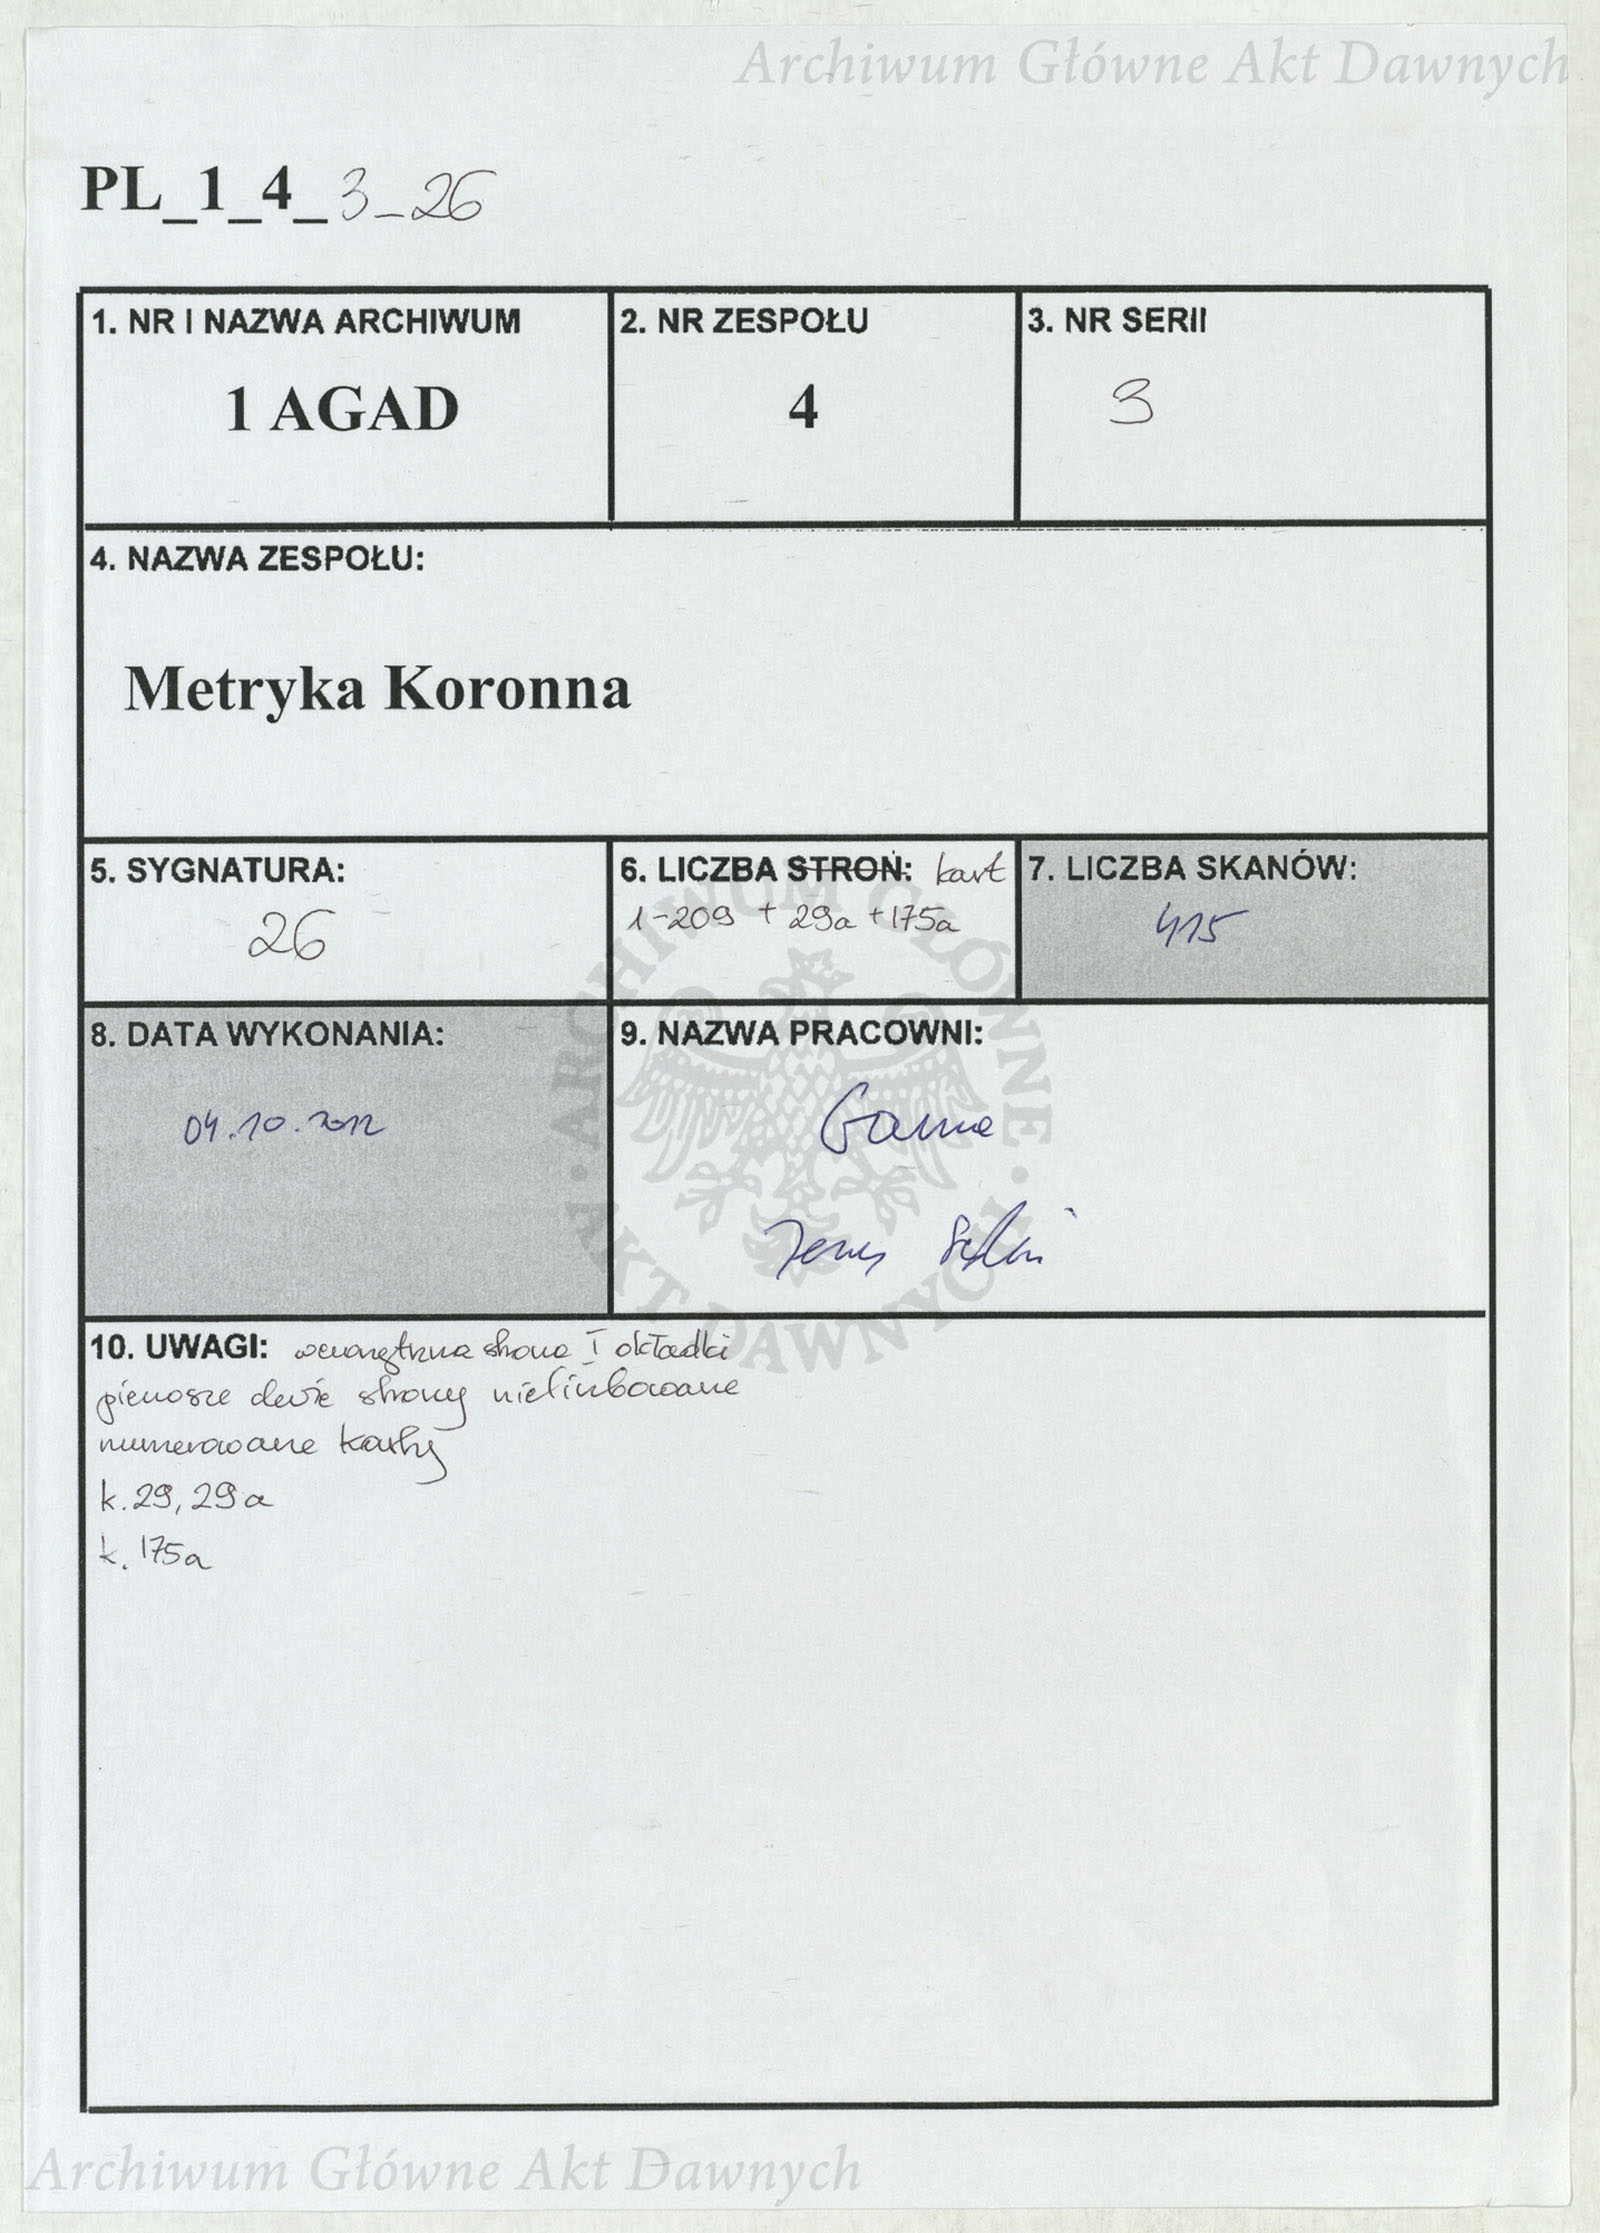 Archiwum Główne Akt Dawnych
PL_1_4_3_26
1. NR I NAZWA ARCHIWUM
1 AGAD
2. NR ZESPOŁU
4
3. NR SERII
3
4. NAZWA ZESPOŁU:
Metryka Koronna
5. SYGNATURA:
26
6. LICZBA STRON: kart
1-209 + 29a + 175a
7. LICZBA SKANÓW:
415
8. DATA WYKONANIA:
04.10.2012
9. NAZWA PRACOWNI:
ARCHIWUM GŁÓWNE · AKT DAWNYCH ·
10. UWAGI: wewnętrzna strona I okładki
pierwsze dwie strony nieliczbowane
numerowane karty
k. 29, 29a
k. 175a
Archiwum Główne Akt Dawnych